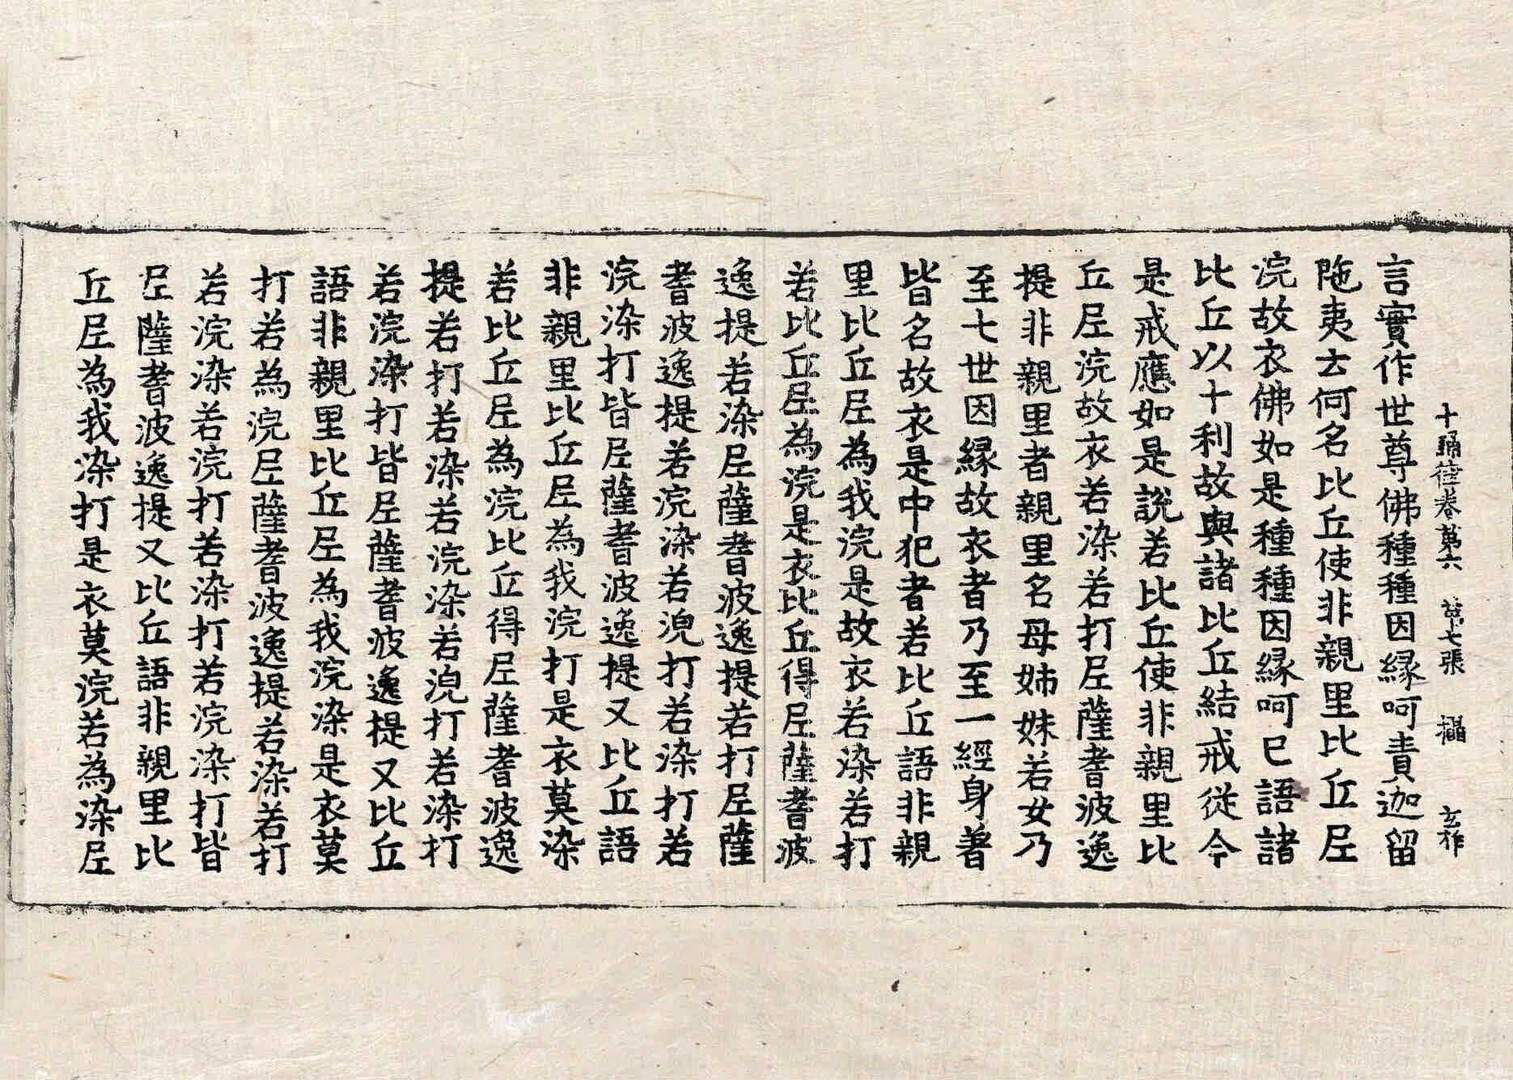 十誦律卷第六　第七張　攝　玄祚
言實作世尊佛種種因縁呵責迦留
陁夷云何名比丘使非親里比丘尼
浣故衣佛如是種種因縁呵已語諸
比丘以十利故與諸比丘結戒從今
是戒應如是說若比丘使非親里比
丘尼浣故衣若染若打尼薩耆波逸
提非親里者親里名母姉妹若女乃
至七世因縁故衣者乃至一經身著
皆名故衣是中犯者若比丘語非親
里比丘尼為我浣是故衣若染若打
若比丘尼為浣是衣比丘得尼薩耆波
逸提若染尼薩耆波逸提若打尼薩
耆波逸提若浣染若浣打若染打若
浣染打皆尼薩耆波逸提又比丘語
非親里比丘尼為我浣打是衣莫染
若比丘尼為浣比丘得尼薩耆波逸
提若打若染若浣染若浣打若染打
若浣染打皆尼薩耆波逸提又比丘
語非親里比丘尼為我浣染是衣莫
打若為浣尼薩耆波逸提若染若打
若浣染若浣打若染打若浣染打皆
尼薩耆波逸提又比丘語非親里比
丘尼為我染打是衣莫浣若為染尼